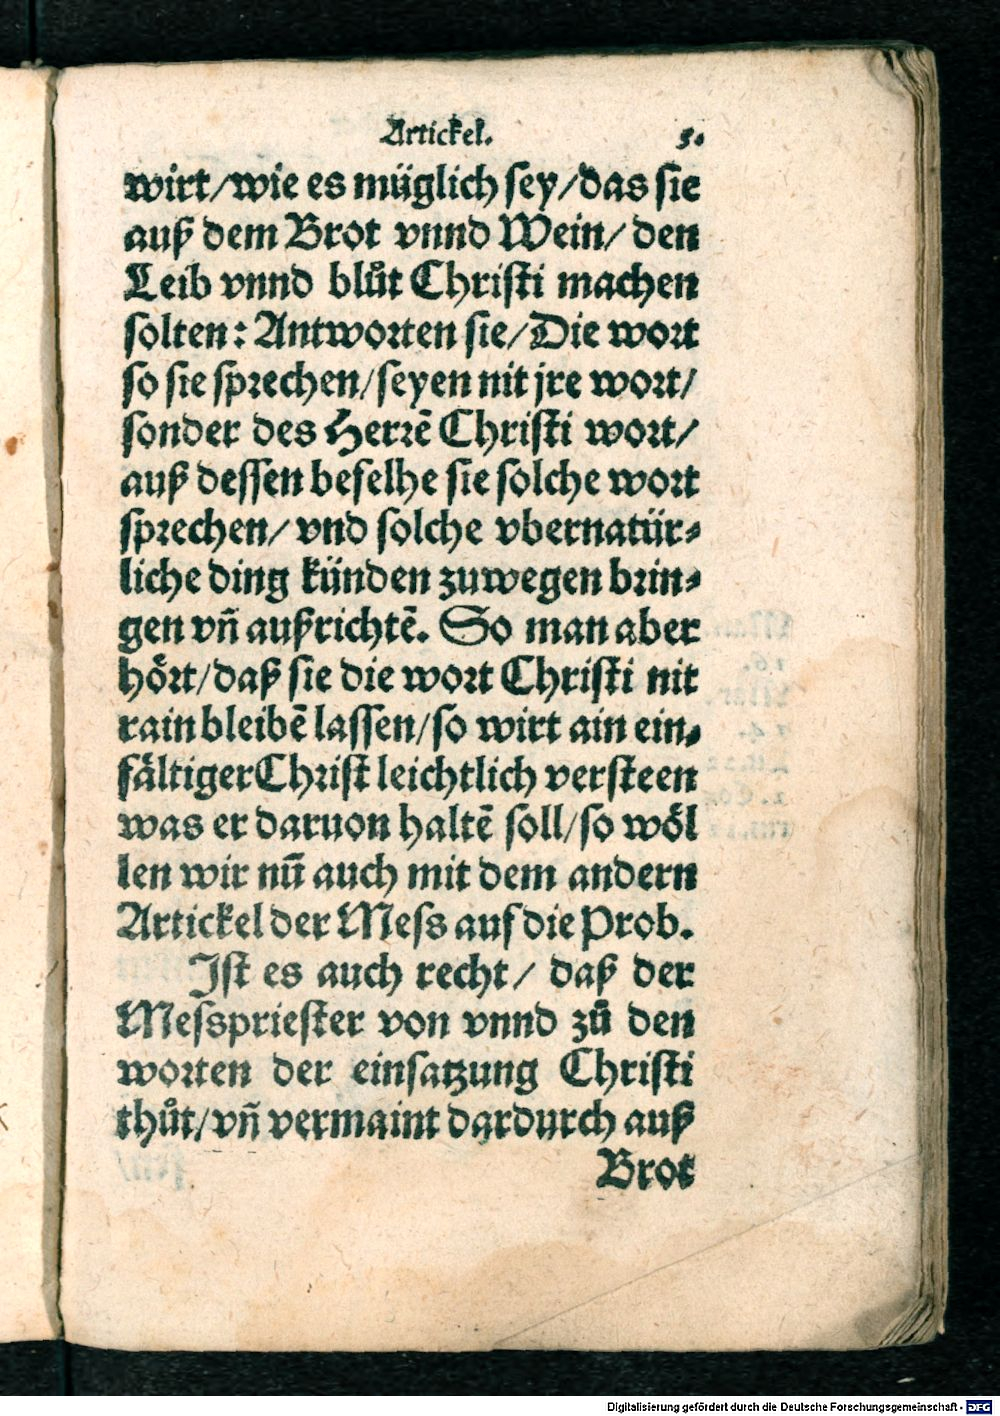 Artickel. 5.
wirt/wie es müglich sey/das sie
auß dem Brot vnnd Wein/ den
Leib vnnd blůt Christi machen
solten: Antworten sie/Die wort
so sie sprechen/seyen nit jre wort/
sonder des Herrē Christi wort/
auß dessen befelhe sie solche wort
sprechen/ vnd solche vbernatür⸗
liche ding künden zuwegen brin⸗
gen vñ außrichtē. So man aber
hört/daß sie die wort Christi nit
rain bleibē lassen/so wirt ain ein⸗
fältiger Christ leichtlich versteen
was er daruon haltē soll/so wöl
len wir nū auch mit dem andern
Artickel der Mess auf die Prob.
Ist es auch recht/ daß der
Messpriester von vnnd zů den
worten der einsatzung Christi
thůt/vñ vermaint dardurch auß
Brot
Digitalisierung gefördert durch die Deutsche Forschungsgemeinschaft - DFG